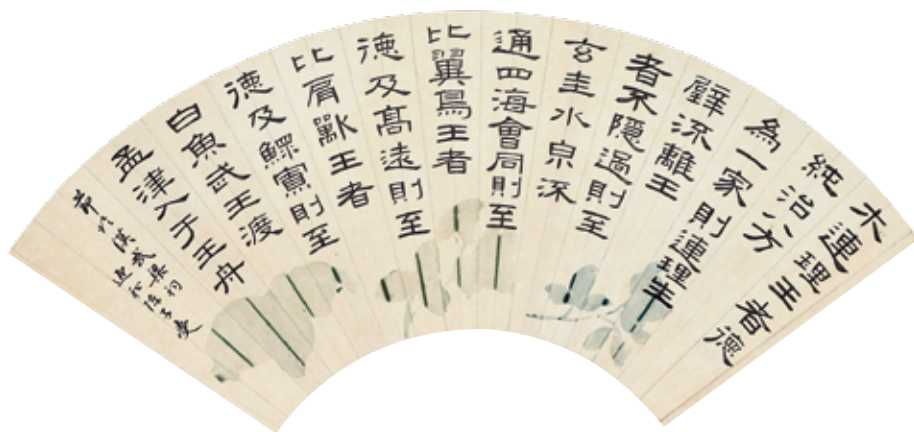 木連理王者德
純洽八方
為一家則連理生
璧流離王
者不隱過則至
玄圭水泉流
通四海會同則至
比翼鳥王者
德及高遠則至
比肩獸王者
德及鰥寡則至
白魚武王渡
孟津入于王舟
漢武梁祠